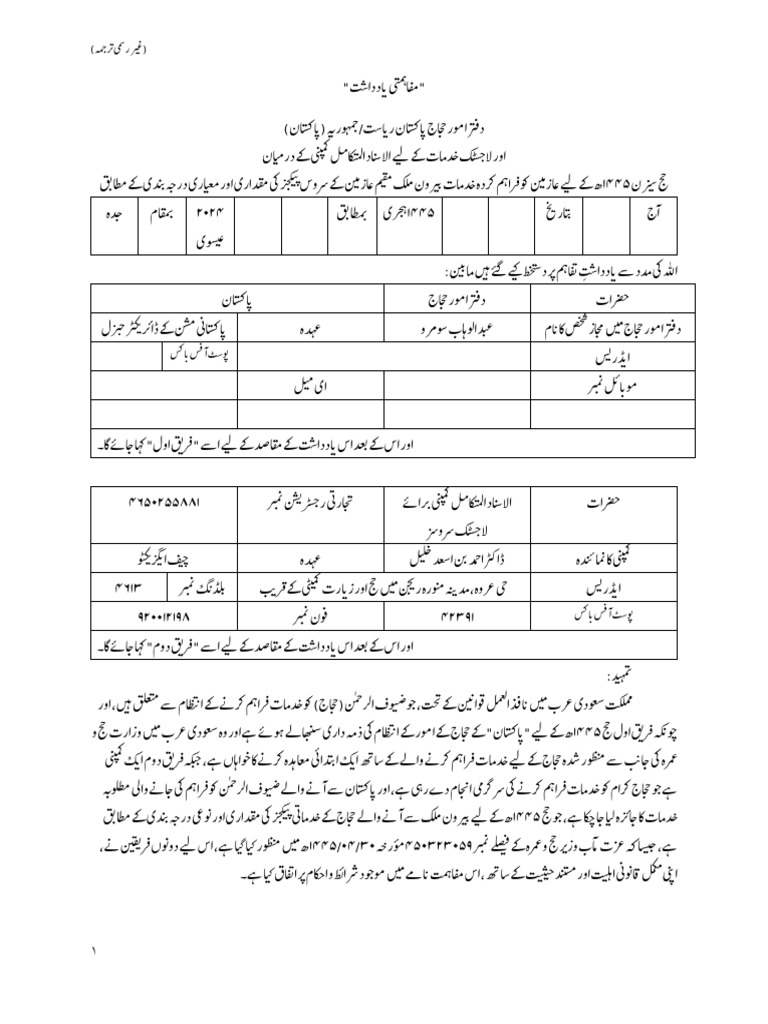 (غیر رسمی ترجمہ)
"مفاہمتی یادداشت"
دفتر امور حجاج پاکستان ریاست/جمہوریہ (پاکستان)
اور لاجسٹک خدمات کے لیے الاسناد المتکامل کمپنی کے درمیان
حج سیزن ۱۴۴۵ھ کے لیے عازمین کو فراہم کردہ خدمات بیرون ملک مقیم عازمین کے سروس پیکجز کی مقداری اور معیاری درجہ بندی کے مطابق
آج بتاریخ ۱۴۴۵ہجری بمطابق ۲۰۲۴ بمقام جدہ
عیسوی
اللہ کی مدد سے یادداشتِ تفاہم پر دستخط کیے گئے ہیں مابین:
حضرات دفتر امور حجاج پاکستان
دفتر امور حجاج میں مجاز شخص کا نام عبدالوہاب سومرو عہدہ پاکستانی مشن کے ڈائریکٹر جنرل
ایڈریس پوسٹ آفس باکس
موبائل نمبر ای میل
اور اس کے بعد اس یادداشت کے مقاصد کے لیے اسے "فریق اول" کہا جائے گا۔
حضرات الاسناد المتکامل کمپنی برائے تجارتی رجسٹریشن نمبر ۴۶۵۰۲۵۵۸۸۱
لاجسٹک سروسز
کمپنی کا نمائندہ ڈاکٹر احمد بن اسعد خلیل عہدہ چیف ایگزیکٹو
ایڈریس حی عروہ، مدینہ منورہ ریجن میں حج اور زیارت کمیٹی کے قریب بلڈنگ نمبر ۴۶۱۳
پوسٹ آفس باکس ۴۲۳۹۱ فون نمبر ۹۲۰۰۱۲۱۹۸
اور اس کے بعد اس یادداشت کے مقاصد کے لیے اسے "فریق دوم" کہا جائے گا۔
تمہید:
مملکت سعودی عرب میں نافذ العمل قوانین کے تحت، جو ضیوف الرحمٰن (حجاج) کو خدمات فراہم کرنے کے انتظام سے متعلق ہیں، اور
چونکہ فریق اول حج ۱۴۴۵ھ کے لیے "پاکستان" کے حجاج کے امور کے انتظام کی ذمہ داری سنبھالے ہوئے ہے اور وہ سعودی عرب میں وزارت حج و
عمرہ کی جانب سے منظور شدہ حجاج کے لیے خدمات فراہم کرنے والے کے ساتھ ایک ابتدائی معاہدہ کرنے کا خواہاں ہے، جبکہ فریق دوم ایک کمپنی
ہے جو حجاج کرام کو خدمات فراہم کرنے کی سرگرمی انجام دے رہی ہے، اور پاکستان سے آنے والے ضیوف الرحمٰن کو فراہم کی جانے والی مطلوبہ
خدمات کا جائزہ لیا جا چکا ہے، جو حج ۱۴۴۵ھ کے لیے بیرون ملک سے آنے والے حجاج کے خدماتی پیکجز کی مقداری اور نوعی درجہ بندی کے مطابق
ہے، جیسا کہ عزت مآب وزیر حج و عمرہ کے فیصلے نمبر ۴۵۰۳۲۳۰۵۹ مؤرخہ ۱۴۴۵/۰۴/۳۰ھ میں منظور کیا گیا ہے، اس لیے دونوں فریقین نے،
اپنی مکمل قانونی اہلیت اور مستند حیثیت کے ساتھ، اس مفاہمت نامے میں موجود شرائط و احکام پر اتفاق کیا ہے۔
۱